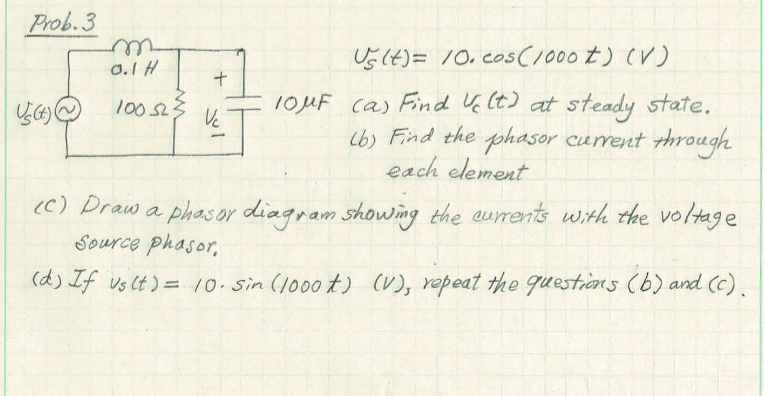 Prob. 3
0.1 H
100 Ω
+
Vc
-
10 μF
Vs(t)
Vs(t) = 10. cos(1000 t) (V)
(a) Find Vc(t) at steady state.
(b) Find the phasor current through
each element
(c) Draw a phasor diagram showing the currents with the voltage
source phasor.
(d) If vs(t) = 10. sin(1000 t) (V), repeat the questions (b) and (c).